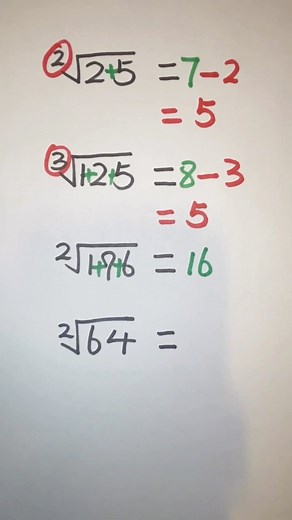 ²√2+5 = 7-2
= 5
³√1+2+5 = 8-3
= 5
²√1+9+6 = 16
²√64 =